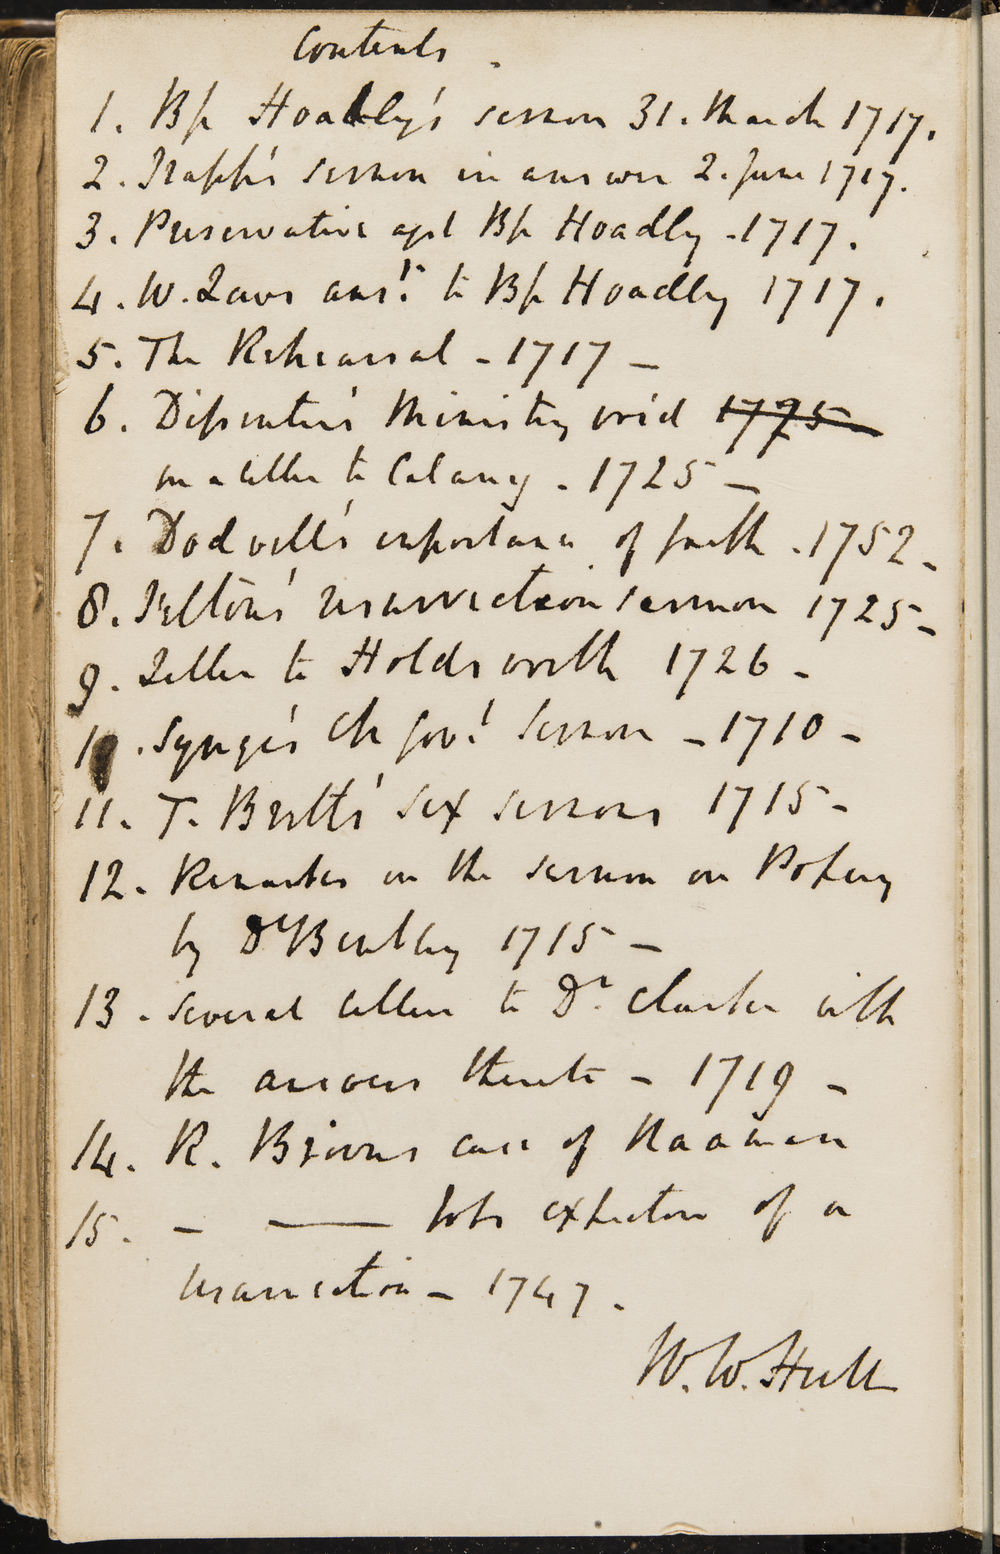 Contents.
1. Bp Hoadly's sermon 31. March 1717.
2. Trapp's sermon in answer 2. June 1717.
3. Preservative agst Bp Hoadly - 1717.
4. W. Laws ansr. to Bp Hoadly 1717.
5. The Rehearsal - 1717 -
6. Dissenters' Ministry void 1725
in a letter to Calamy - 1725 -
7. Dodwell's importance of faith - 1752 -
8. Felton's resurrection sermon 1725 -
9. Letter to Holdsworth 1726 -
10. Synge's Ch Govt Sermon - 1710 -
11. T. Brett's six sermons 1715 -
12. Remarks on the sermon on Popery
by Dr Bentley 1715 -
13. Several letters to Dr. Clarke with
the answers thereto - 1719 -
14. R. Browns case of Naaman
15. - — Jobs expecton of a
resurrection - 1747.
W. W. Hull